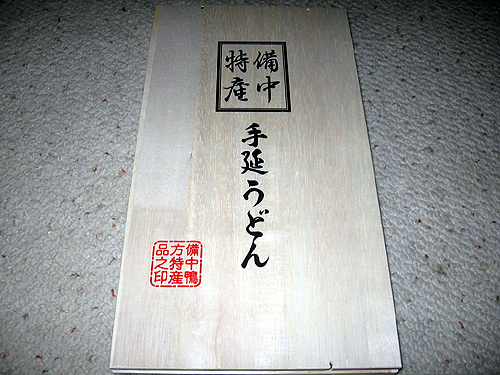 備中
特産
手延うどん
備中鴨
方特産
品之印